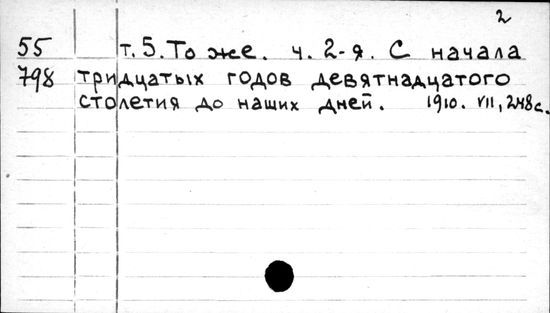 2
55 т. 5. То же. ч. 2-я. С начала
798 тридцатых годов девятнадцатого
столетия до наших дней. 1910. VII, 248 с.